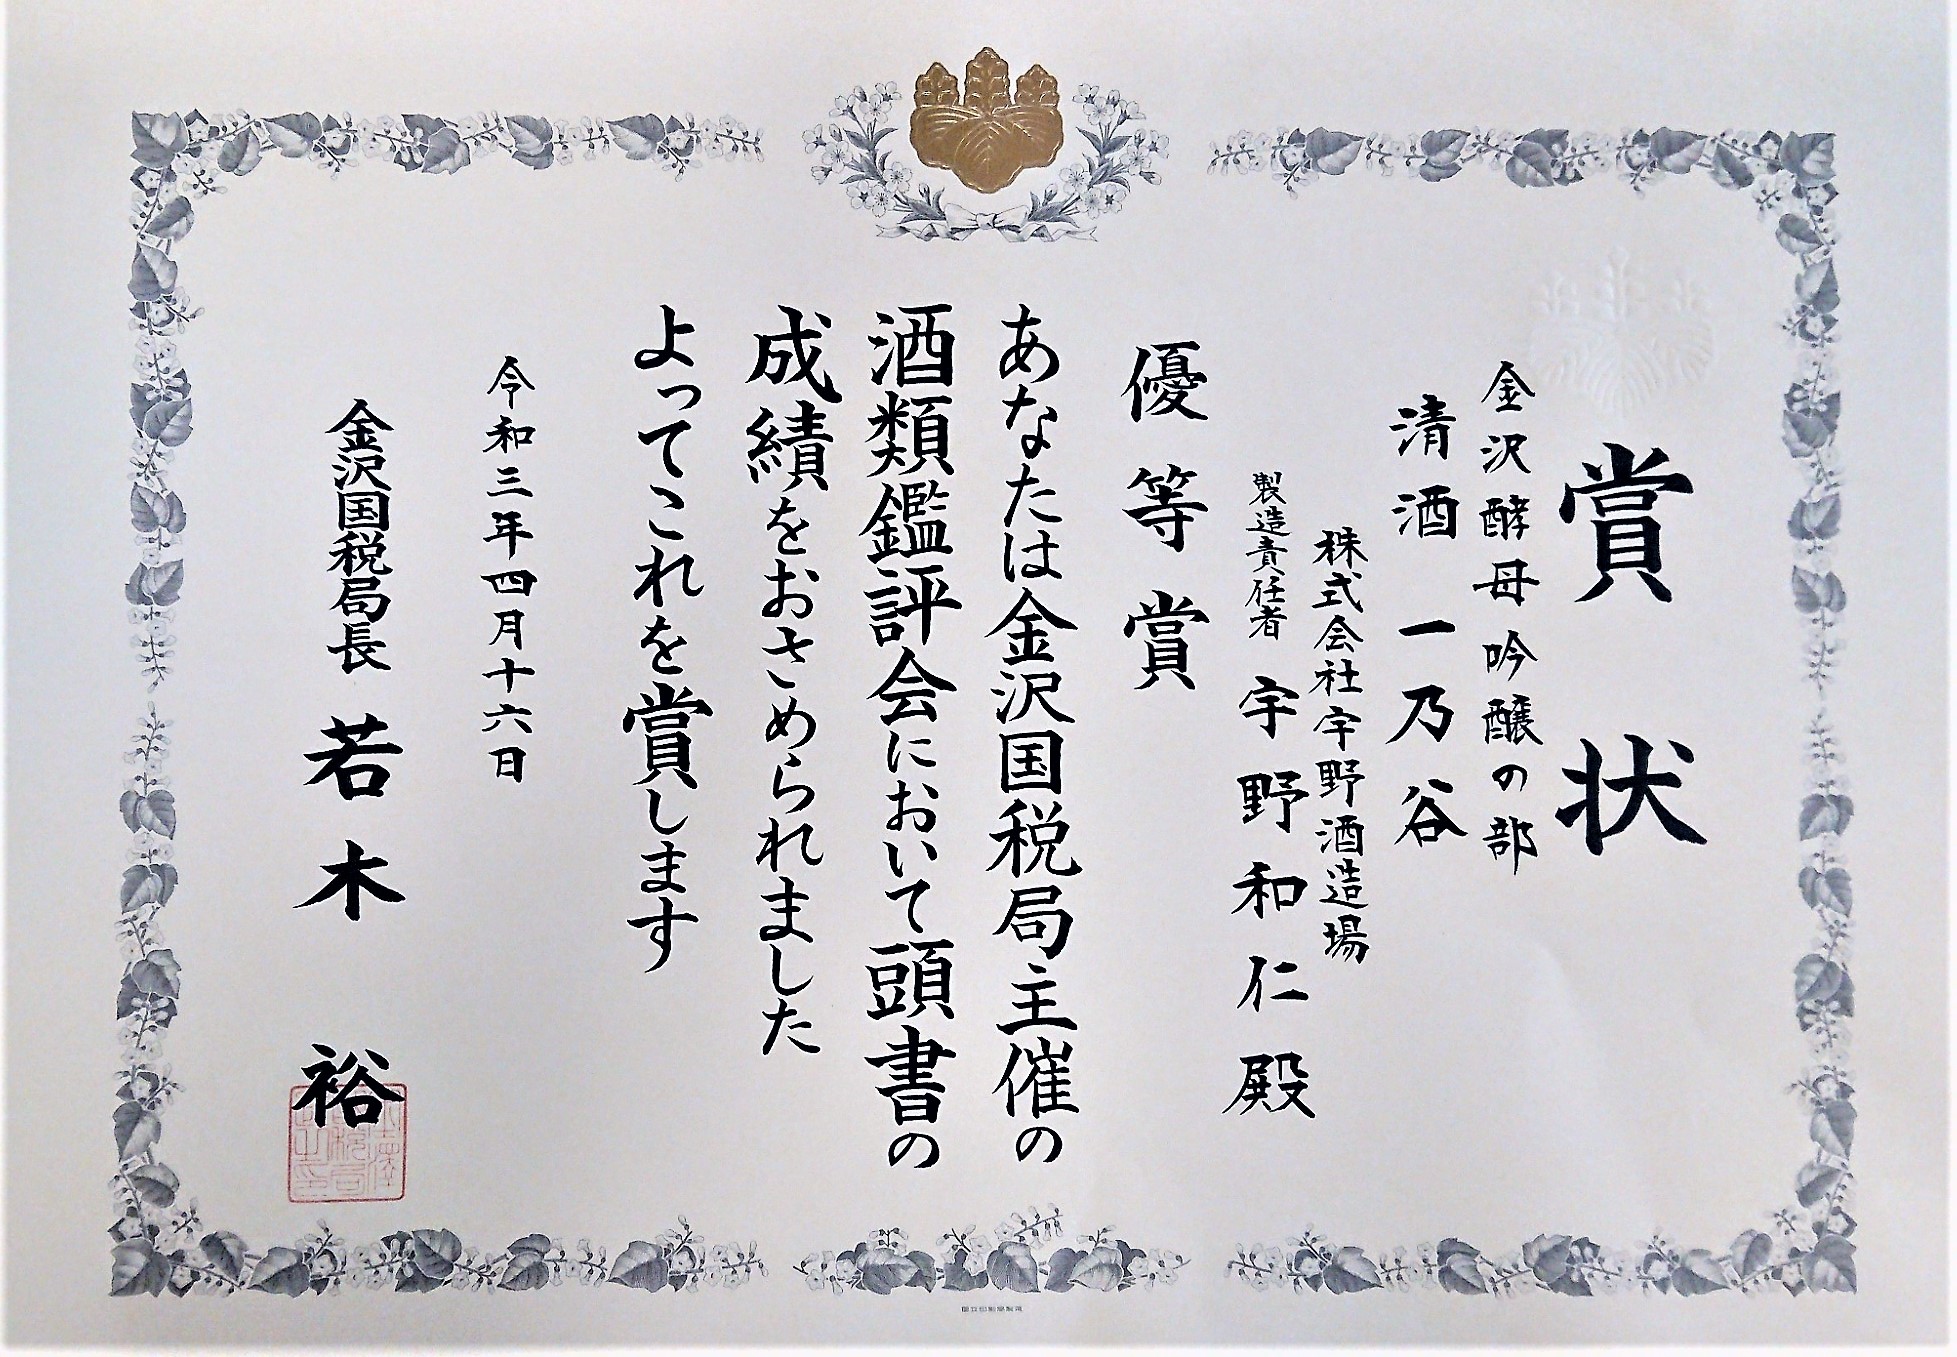 賞状
金沢酵母吟醸の部
清酒 一乃谷
株式会社宇野酒造場
製造責任者 宇野和仁殿
優等賞
あなたは金沢国税局主催の
酒類鑑評会において頭書の
成績をおさめられました
よってこれを賞します
令和三年四月十六日
金沢国税局長 若木 裕
国立印刷局製造